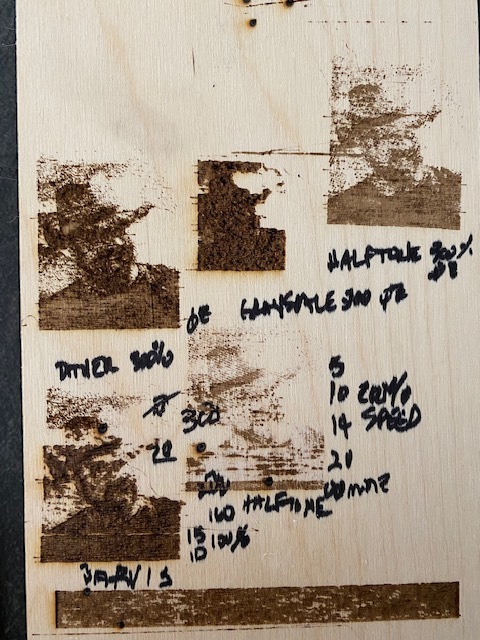 HALFTONE 300%
GRAYSCALE 300
DITHER 300%
300
20
5
10 200%
14 SPEED
20
160 HALFTONE
15
10 100%
JARVIS